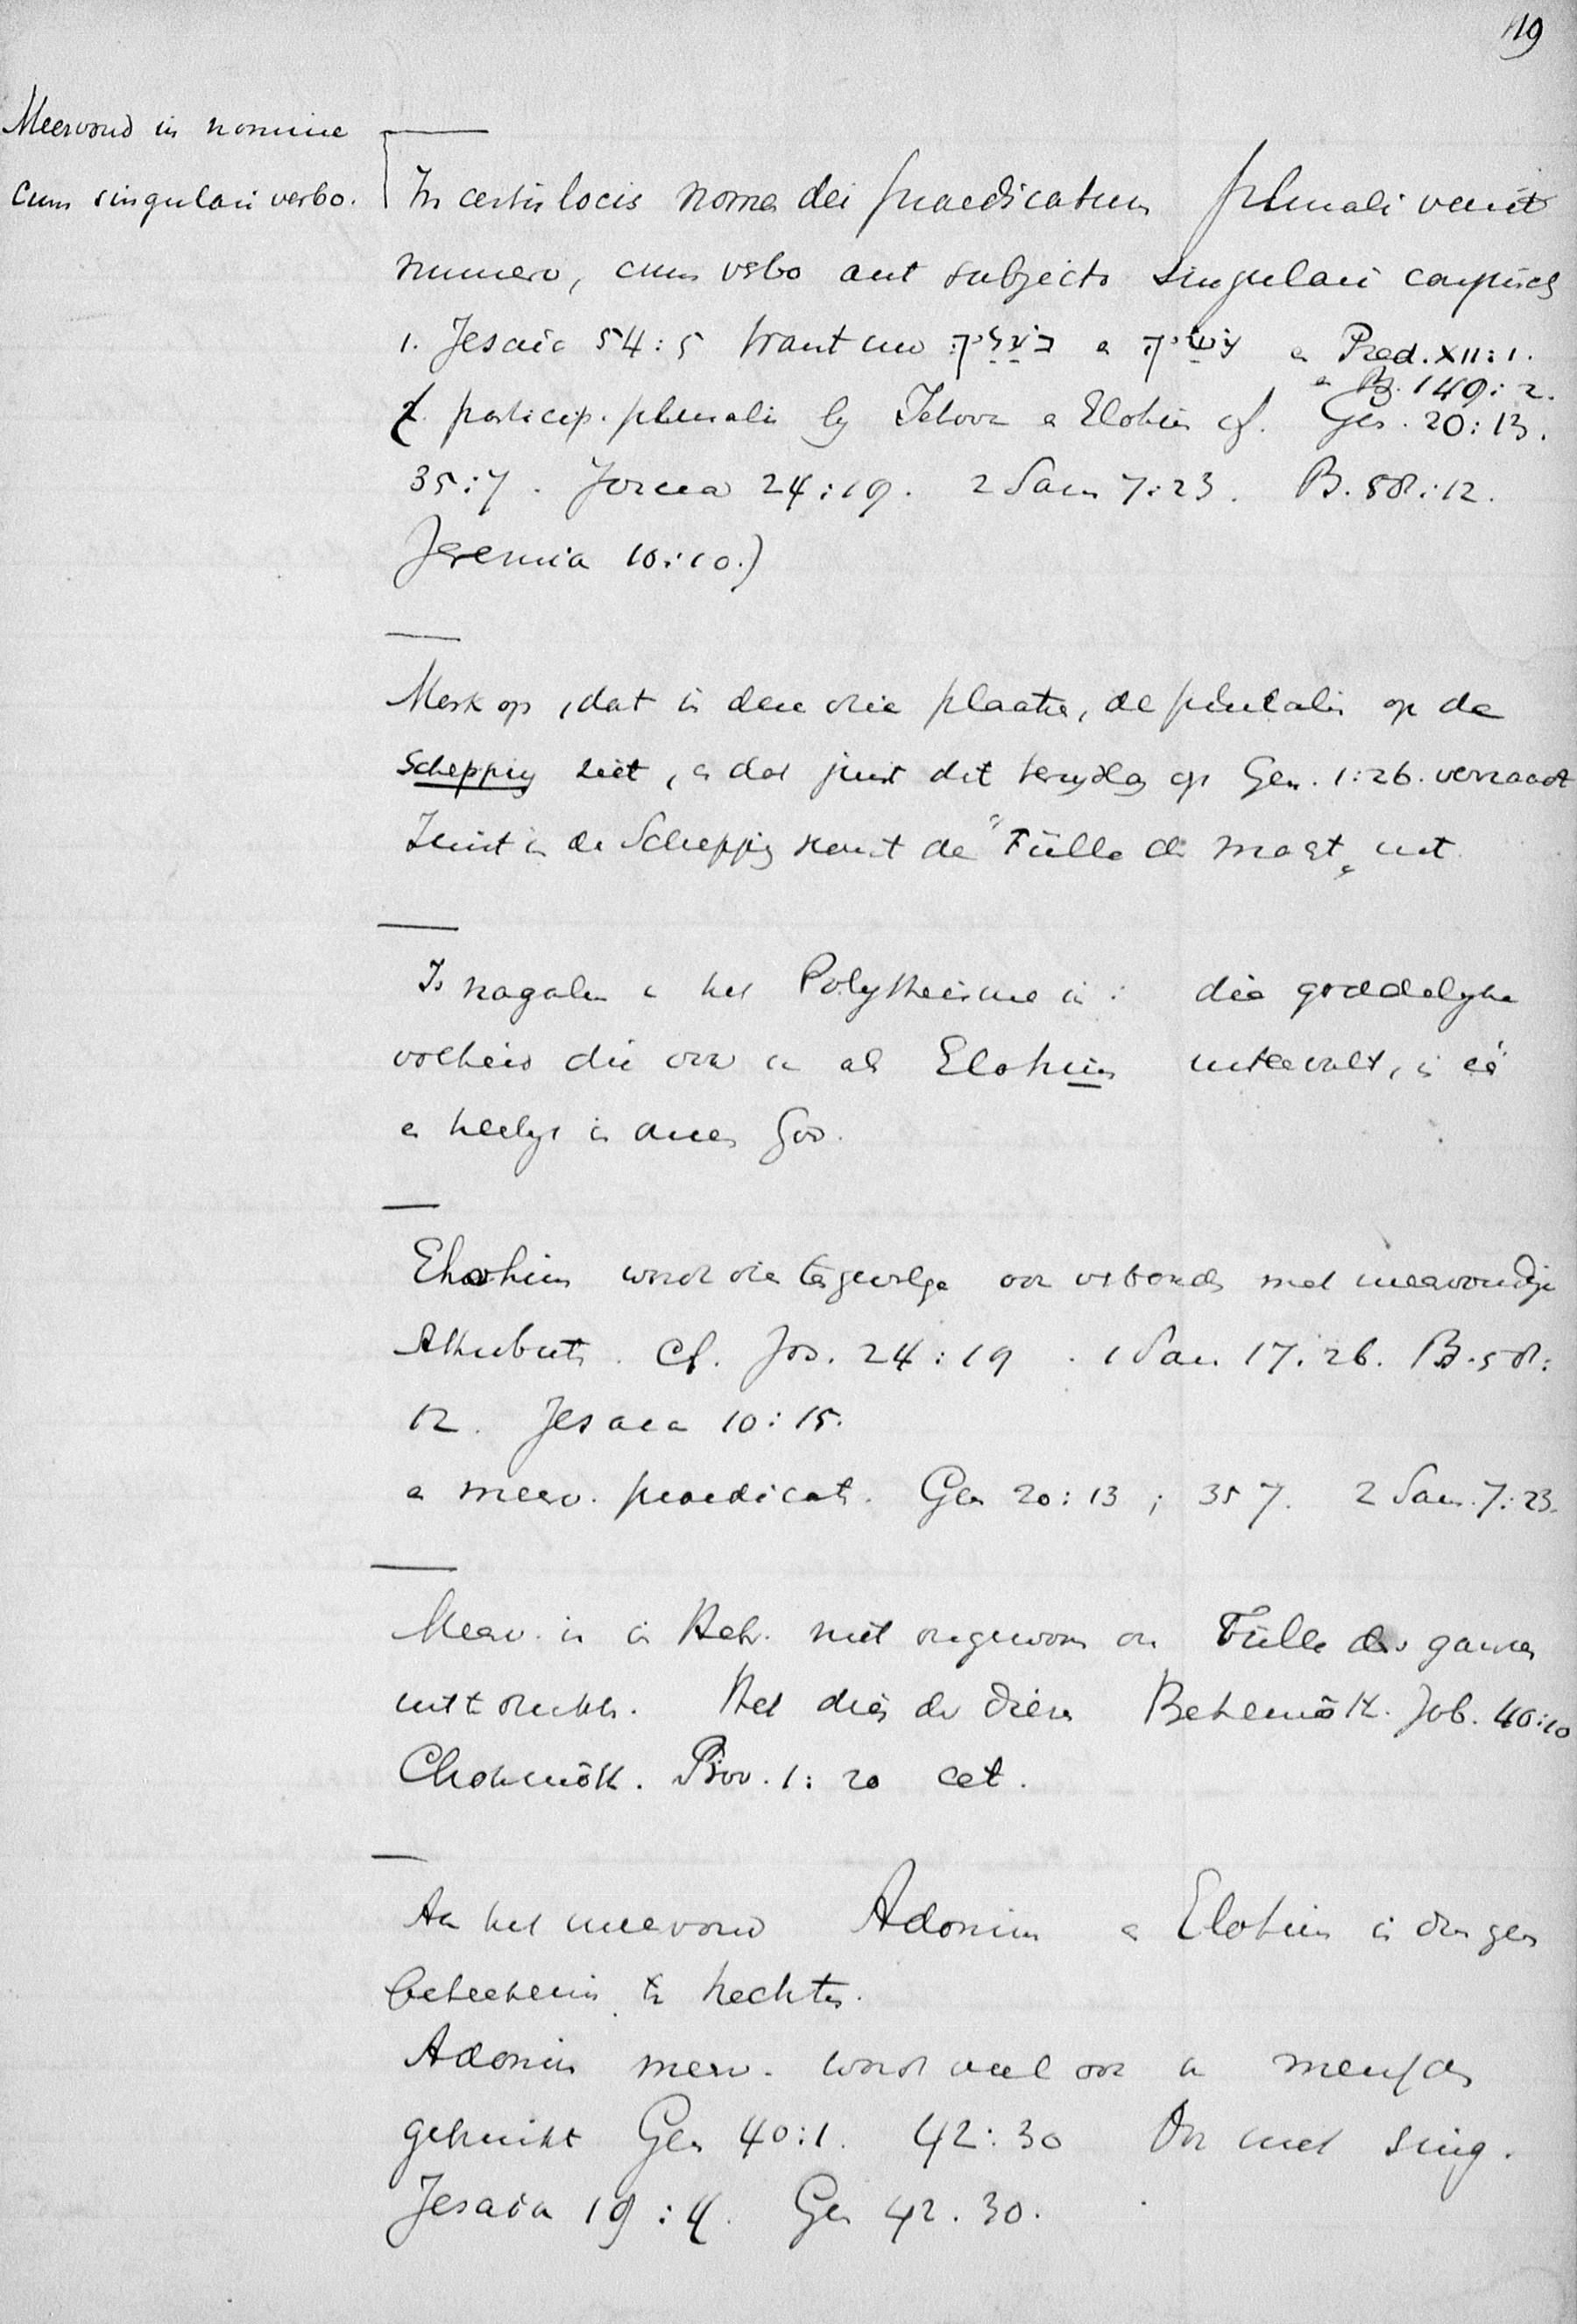 119
Meervoud in nomine
cum singulari verbo.
In certis locis nomen dei praedicatum plurali venit
numero, cum verbo aut subjecto singulari conjunct
1. Jesaia 54:5 Want uw בֹעֲלַיִךְ en עֹשַׂיִךְ en Pred. XII:1.
en Ps. 149:2.
2. particip. pluralis by Jehova en Elohim cf. Gen. 20:13.
35:7. Jozua 24:19. 2 Sam 7:23. Ps. 58:12.
Jeremia 10:10.)
Merk op, dat in deze drie plaatsen, de pluralis op de
Schepping ziet, en dat juist dit terugslag op Gen. 1:26. verraadt
Juist in de Schepping komt de "Fülle der macht" uit
Is nagalm in het Polytheisme is: die goddelyke
volheid die ook in als Elohim uiteenvalt, is éé
en heelyk in onzen God.
Elohim word dientengevolge ook verbonden met meervoudige
Attributen. Cf. Jos. 24:19. 1 Sam. 17:26. Ps. 58:
12. Jesaia 10:15.
en meerv. praedicat. Gen 20:13; 35 7. 2 Sam. 7:23.
Meerv. is in Hebr. niet ongewoon om Fülle des ganzen
uit te drukken. Het dier der dieren Behemôth. Job. 40:10
Chokmôth. Prov. 1:20 cet.
Aan het meervoud Adonim en Elohim is dus geen
beteekenis te hechten.
Adonim meerv. word veel ook van menschen
gebruikt Gen 40:1. 42:30 Ook met sing.
Jesaia 19:4. Gen 42.30.